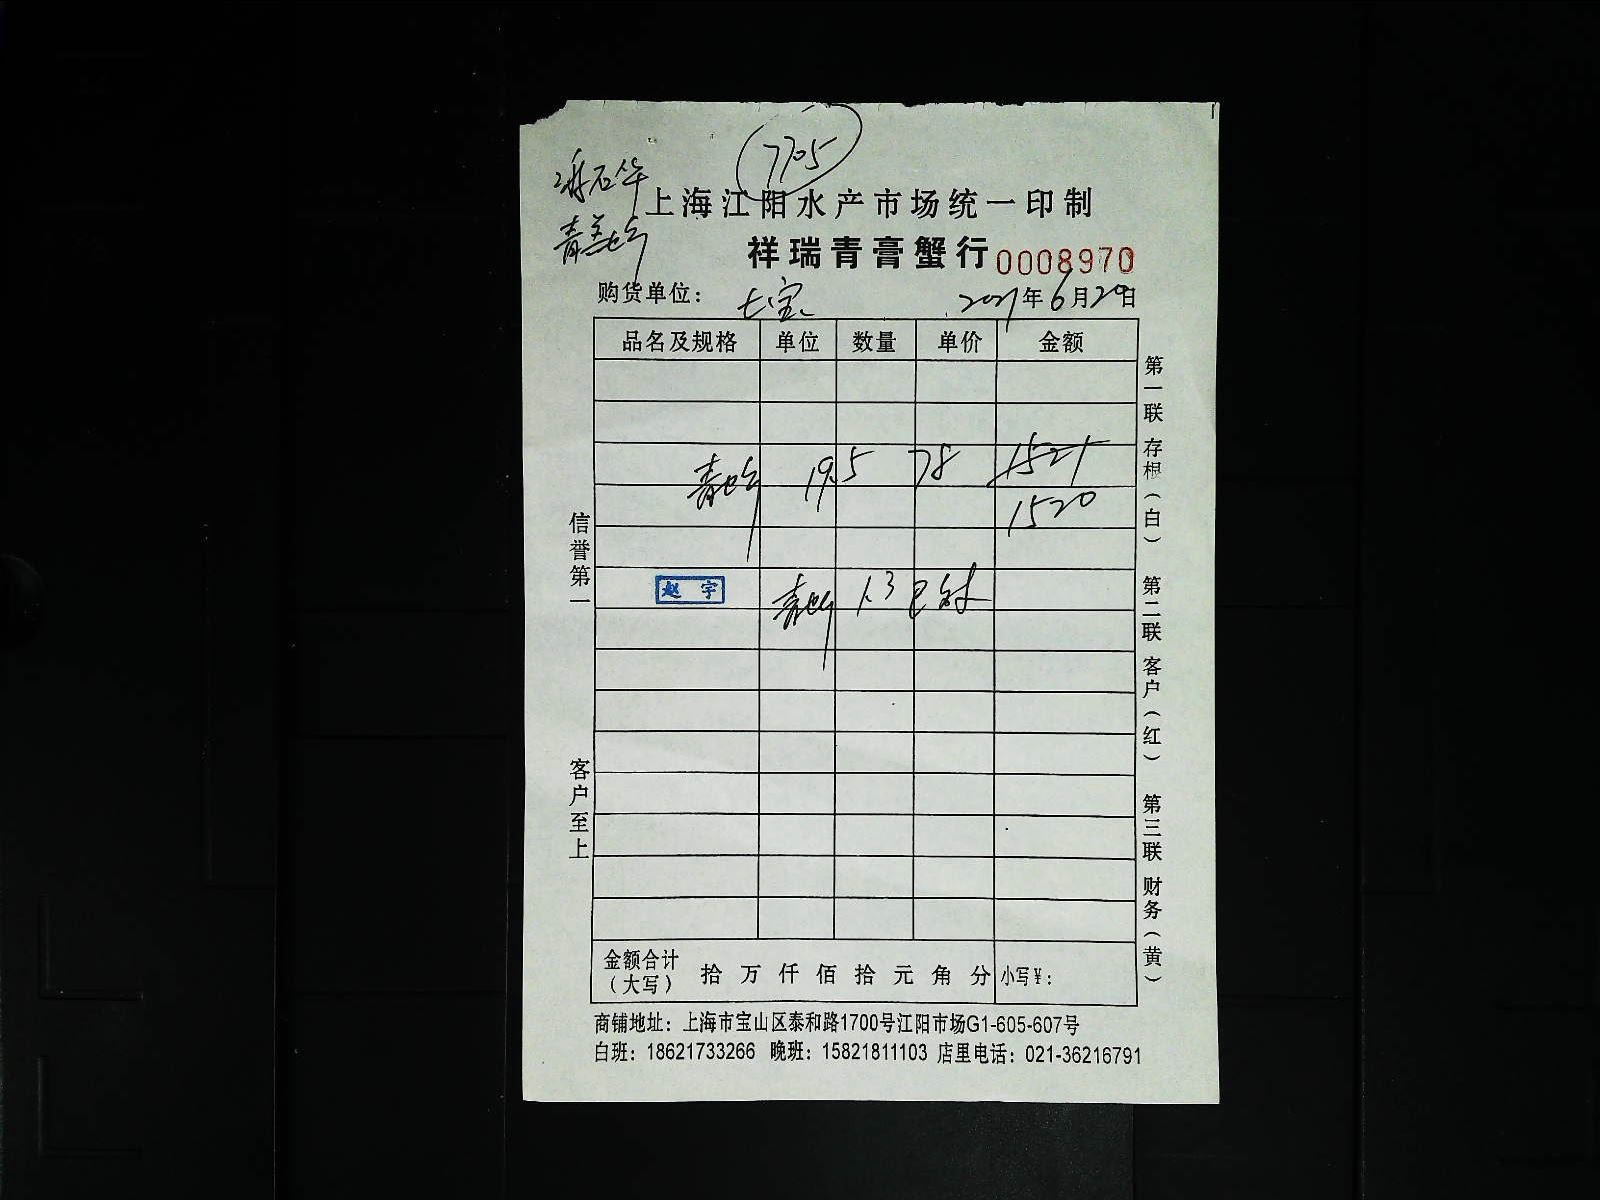 7705
石华
上海江阳水产市场统一印制
祥瑞青膏蟹行 0008970
购货单位： 七宝 2021年6月20日
品名及规格 单位 数量 单价 金额
青 19.5 78 1521
1520
赵宇 青 1.3 已付
金额合计（大写） 拾 万 仟 佰 拾 元 角 分 小写￥：
信誉第一
客户至上
第一联 存根（白）
第二联 客户（红）
第三联 财务（黄）
商铺地址：上海市宝山区泰和路1700号江阳市场G1-605-607号
白班：18621733266 晚班：15821811103 店里电话：021-36216791